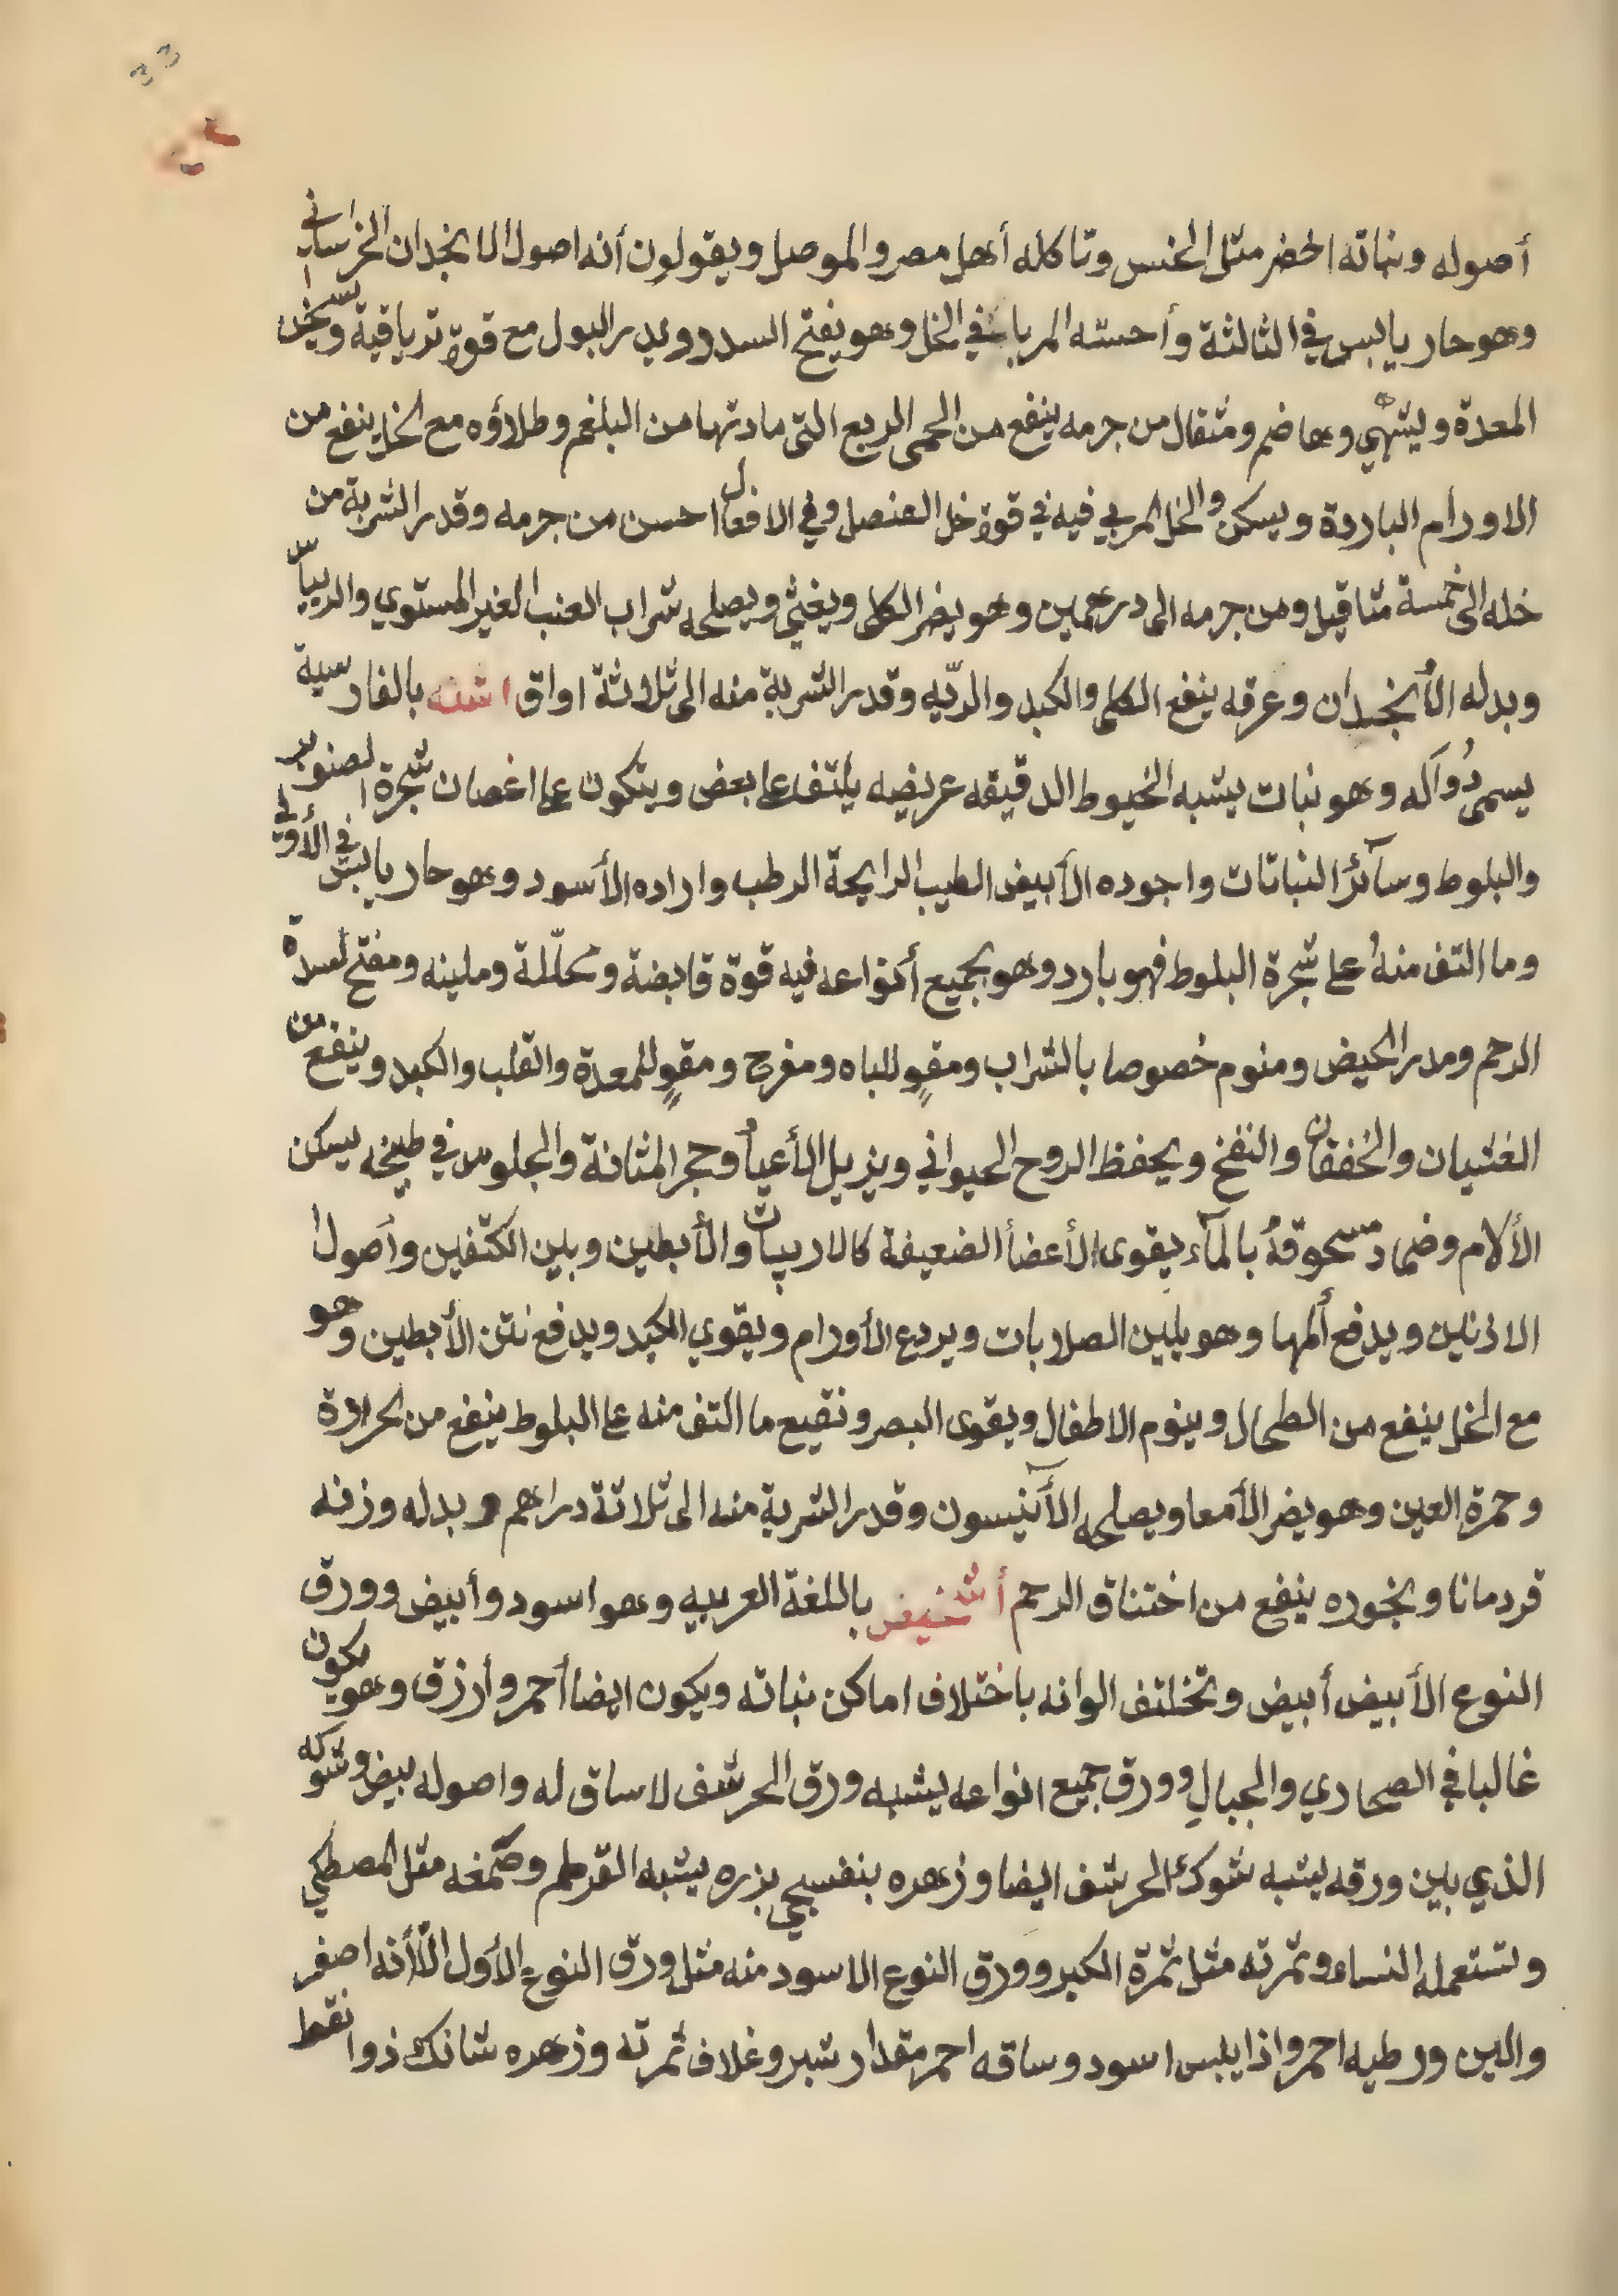 33
أصوله ونباته الخضر مثل الخس وتاكله أهل مصر والموصل ويقولون أنه اصول الانجدان الخراساني
وهو حار يابس في الثالثة وأحسنه المربا في الخل وهو يفتح السدد ويدر البول مع قوة ترياقية ويسخن
المعدة ويشهي وهاضم ومثقال من جرمه ينفع من الحمى الربع التي مادتها من البلغم وطلاؤه مع الخل ينفع من
الاورام الباردة ويسكن والخل المربي فيه في قوة خل العنصل وفي الافعال احسن من جرمه وقدر الشربة من
خله الى خمسة مثاقيل ومن جرمه الى درهمين وهو يضر الكلى ويغثي ويصلحه شراب العنب الغير المستوي والريباس
وبدله الأنجدان وعرقه ينفع الكلى والكبد والريّه وقدر الشربة منه الى ثلاثة اواق اشنه بالفارسية
يسمى دُوآله وهو نبات يشبه الخيوط الدقيقه عريضه يلتف على بعض ويتكون على اغصان شجرة الصنوبر
والبلوط وسآئر النباتات واجوده الأبيض الطيب الرايحة الرطب واراده الأسود وهو حار يابس في الأولى
وما التف منهُ على شجرة البلوط فهو بارد وهو بجميع أنواعه فيه قوة قابضة ومحلّلة ومليّنه ومفتح لسدة
الرحم ومدر الحيض ومنوم خصوصا بالشراب ومقوٍ للباه ومفرح ومقوٍ للمعدة والقلب والكبد وينفع من
الغثيان والخفقان والنفخ ويحفظ الروح الحيواني ويزيل الأعيأ وحجر المثانة والجلوس في طبيخه يسكن
الألام وضماد مسحوقهُ بالمآء يقوى الأعضأ الضعيفة كالاربيات والأبطين وبين الكتفين وأصول
الاذنين ويدفع ألمها وهو يلين الصلابات ويردع الأورام ويقوي الكبد ويدفع نتن الأبطين وهو
مع الخل ينفع من الطحال وينوم الاطفال ويقوى البصر ونقيع ما التف منه على البلوط ينفع من الحرارة
وحمرة العين وهو يضر الأمعا ويصلحه الآنيسون وقدر الشربة منه الى ثلاثة دراهم وبدله وزنه
قردمانا وبخوره ينفع من اختناق الرحم أشخيص باللغة العربيه وهو اسود وأبيض وورق
النوع الأبيض أبيض وتختلف الوانه باختلاف اماكن نباته ويكون ايضا أحمر وأرزق وهو يكون
غالبا في الصحاري والجبال وورق جميع انواعه يشبه ورق الحرشف لا ساق له واصوله بيض وشوكه
الذي بين ورقه يشبه شوك الحرشف ايضا وزهره بنفسجي بزره يشبه القرطم وصمغه مثل المصطكي
وتستعمله النساء وثمرته مثل ثمرة الكبر وورق النوع الاسود منه مثل ورق النوع الأول الّا أنه اصفر
والين ورطبه احمر واذا يبس اسود وساقه احمر مقدار شبر وغلاف ثمرته وزهره شائك ذوا نقط